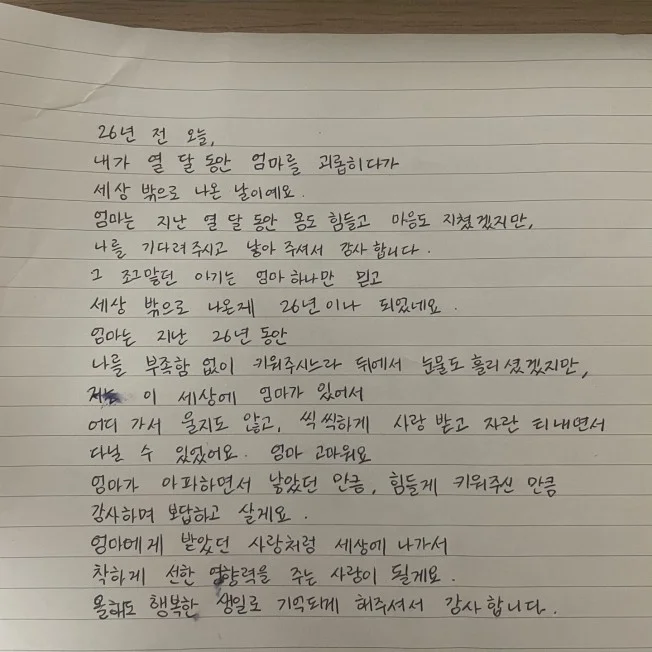 26년 전 오늘,
내가 열 달 동안 엄마를 괴롭히다가
세상 밖으로 나온 날이예요.
엄마는 지난 열 달 동안 몸도 힘들고 마음도 지쳤겠지만,
나를 기다려주시고 낳아 주셔서 감사합니다.
그 조그맣던 아기는 엄마 하나만 믿고
세상 밖으로 나온게 26년이나 되었네요.
엄마는 지난 26년 동안
나를 부족함 없이 키워주시느라 뒤에서 눈물도 흘리셨겠지만,
저는 이 세상에 엄마가 있어서
어디 가서 울지도 않고, 씩씩하게 사랑 받고 자란 티내면서
다닐 수 있었어요. 엄마 고마워요
엄마가 아파하면서 낳았던 만큼, 힘들게 키워주신 만큼
감사하며 보답하고 살게요.
엄마에게 받았던 사랑처럼 세상에 나가서
착하게 선한 영향력을 주는 사람이 될게요.
올해도 행복한 생일로 기억되게 해주셔서 감사합니다.